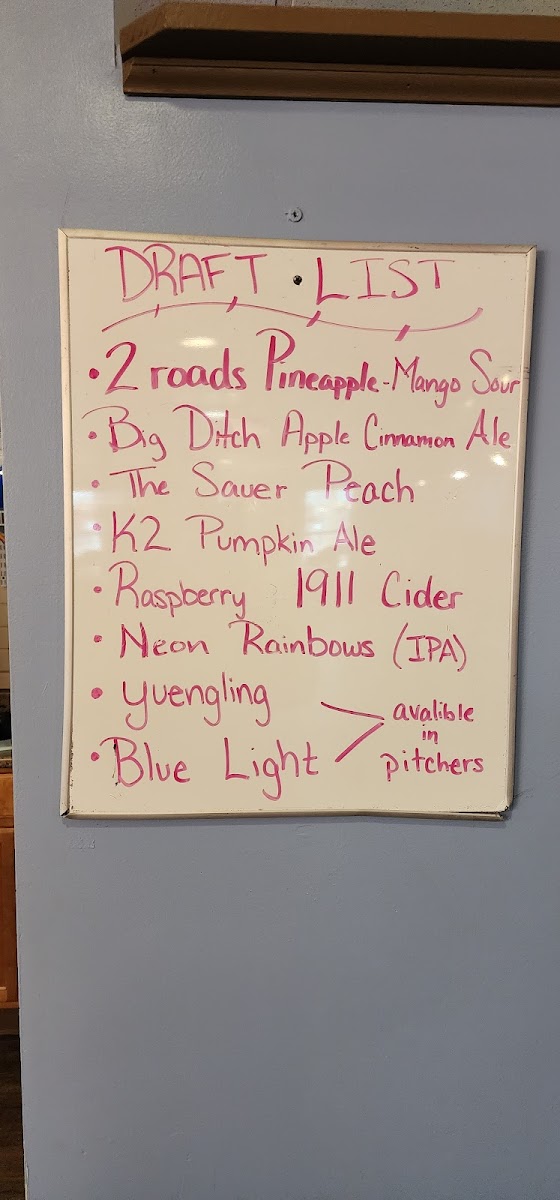 DRAFT • LIST
• 2 roads Pineapple-Mango Sour
• Big Ditch Apple Cinnamon Ale
• The Sauer Peach
• K2 Pumpkin Ale
• Raspberry 1911 Cider
• Neon Rainbows (IPA)
• Yuengling
• Blue Light
avalible
in
pitchers